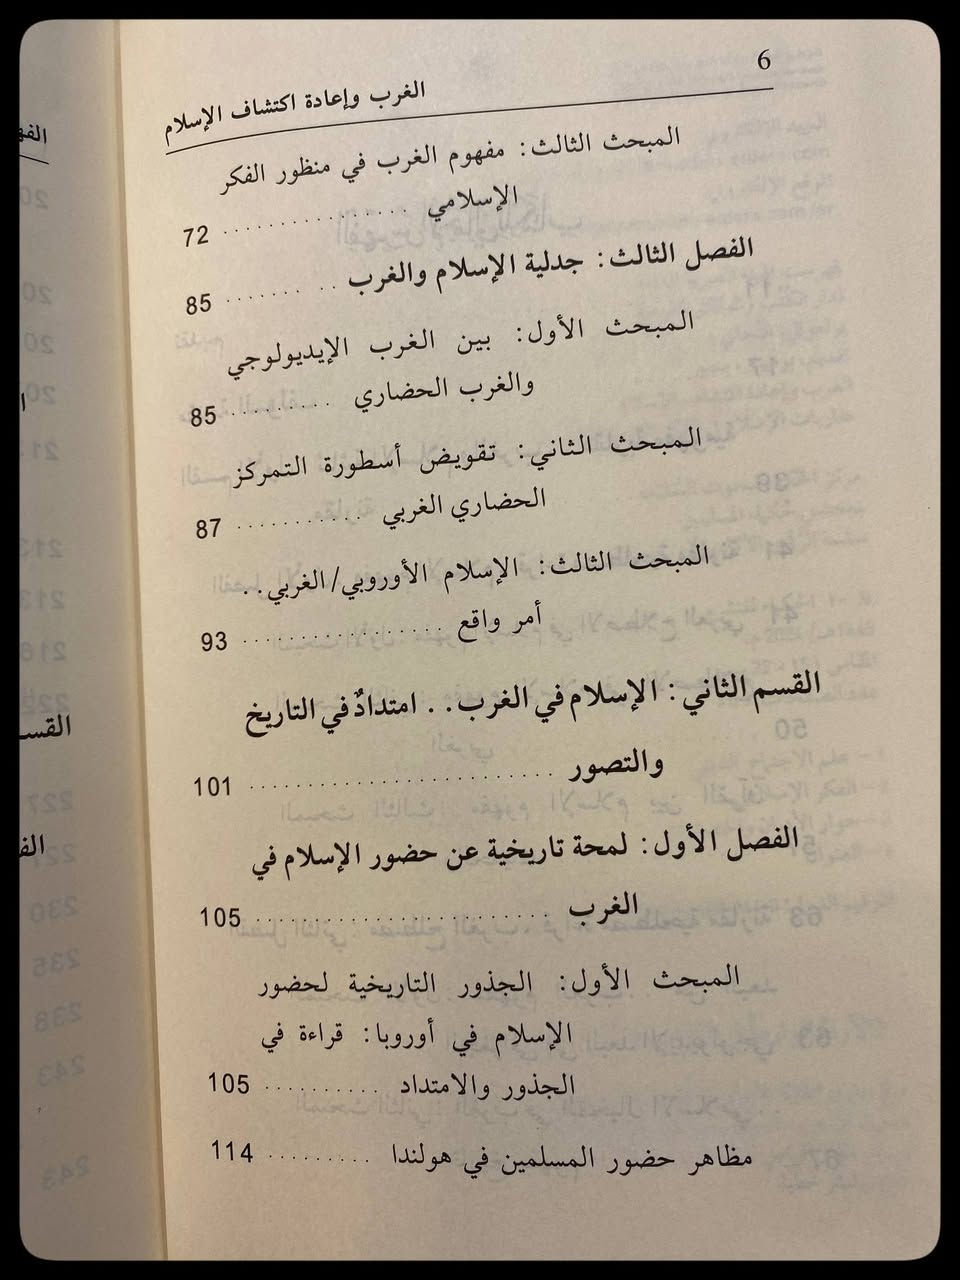 6
الغرب وإعادة اكتشاف الإسلام
المبحث الثالث: مفهوم الغرب في منظور الفكر
الإسلامي . . . . . . . . . . . . . . . 72
الفصل الثالث: جدلية الإسلام والغرب . . . . . . . . 85
المبحث الأول: بين الغرب الإيديولوجي
والغرب الحضاري . . . . . . . . . . 85
المبحث الثاني: تقويض أسطورة التمركز
الحضاري الغربي . . . . . . . . . . . 87
المبحث الثالث: الإسلام الأوروبي/الغربي..
أمر واقع . . . . . . . . . . . . . . . . . 93
القسم الثاني: الإسلام في الغرب.. امتدادٌ في التاريخ
والتصور . . . . . . . . . . . . . . . . . . . . . . . . 101
الفصل الأول: لمحة تاريخية عن حضور الإسلام في
الغرب . . . . . . . . . . . . . . . . . . . . . . . . . 105
المبحث الأول: الجذور التاريخية لحضور
الإسلام في أوروبا: قراءة في
الجذور والامتداد . . . . . . . . . . 105
مظاهر حضور المسلمين في هولندا . . . . . . . . . 114